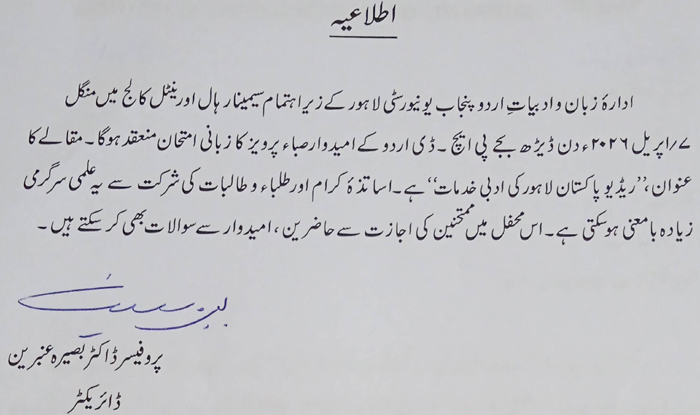 اطلاعیہ
ادارۂ زبان و ادبیاتِ اردو پنجاب یونیورسٹی لاہور کے زیر اہتمام سیمینار ہال اورینٹل کالج میں منگل
۷/اپریل ۲۰۲۶ء دن ڈیڑھ بجے پی ایچ۔ڈی اردو کے امیدوار صباء پرویز کا زبانی امتحان منعقد ہوگا۔مقالے کا
عنوان،،"ریڈیو پاکستان لاہور کی ادبی خدمات" ہے۔اساتذۂ کرام اور طلباء و طالبات کی شرکت سے یہ علمی سرگرمی
زیادہ بامعنی ہوسکتی ہے۔اس محفل میں ممتحنین کی اجازت سے حاضرین، امیدوار سے سوالات بھی کر سکتے ہیں۔
پروفیسر ڈاکٹر بصیرہ عنبرین
ڈائریکٹر